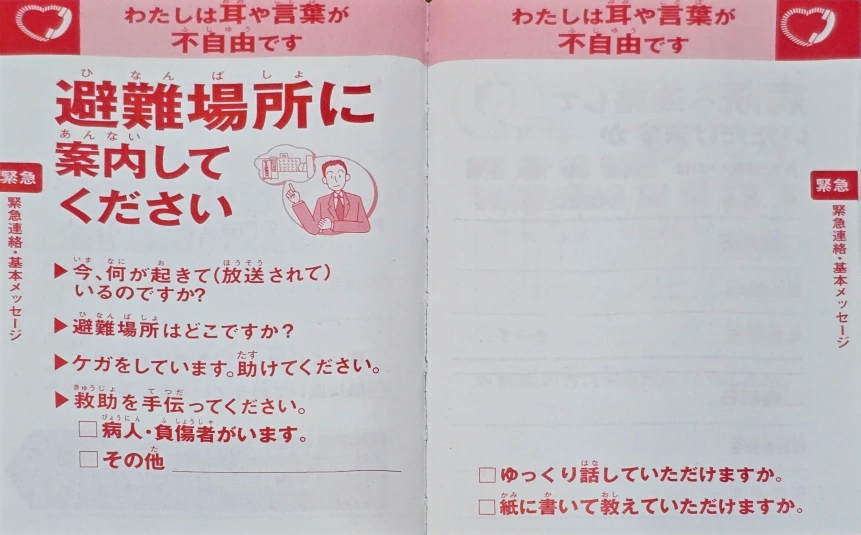 わたしは耳や言葉が
不自由です
避難場所に
案内して
ください
緊急
緊急連絡・基本メッセージ
▶今、何が起きて(放送されて)
いるのですか?
▶避難場所はどこですか?
▶ケガをしています。助けてください。
▶救助を手伝ってください。
□病人・負傷者がいます。
□その他
わたしは耳や言葉が
不自由です
緊急
緊急連絡・基本メッセージ
□ゆっくり話していただけますか。
□紙に書いて教えていただけますか。